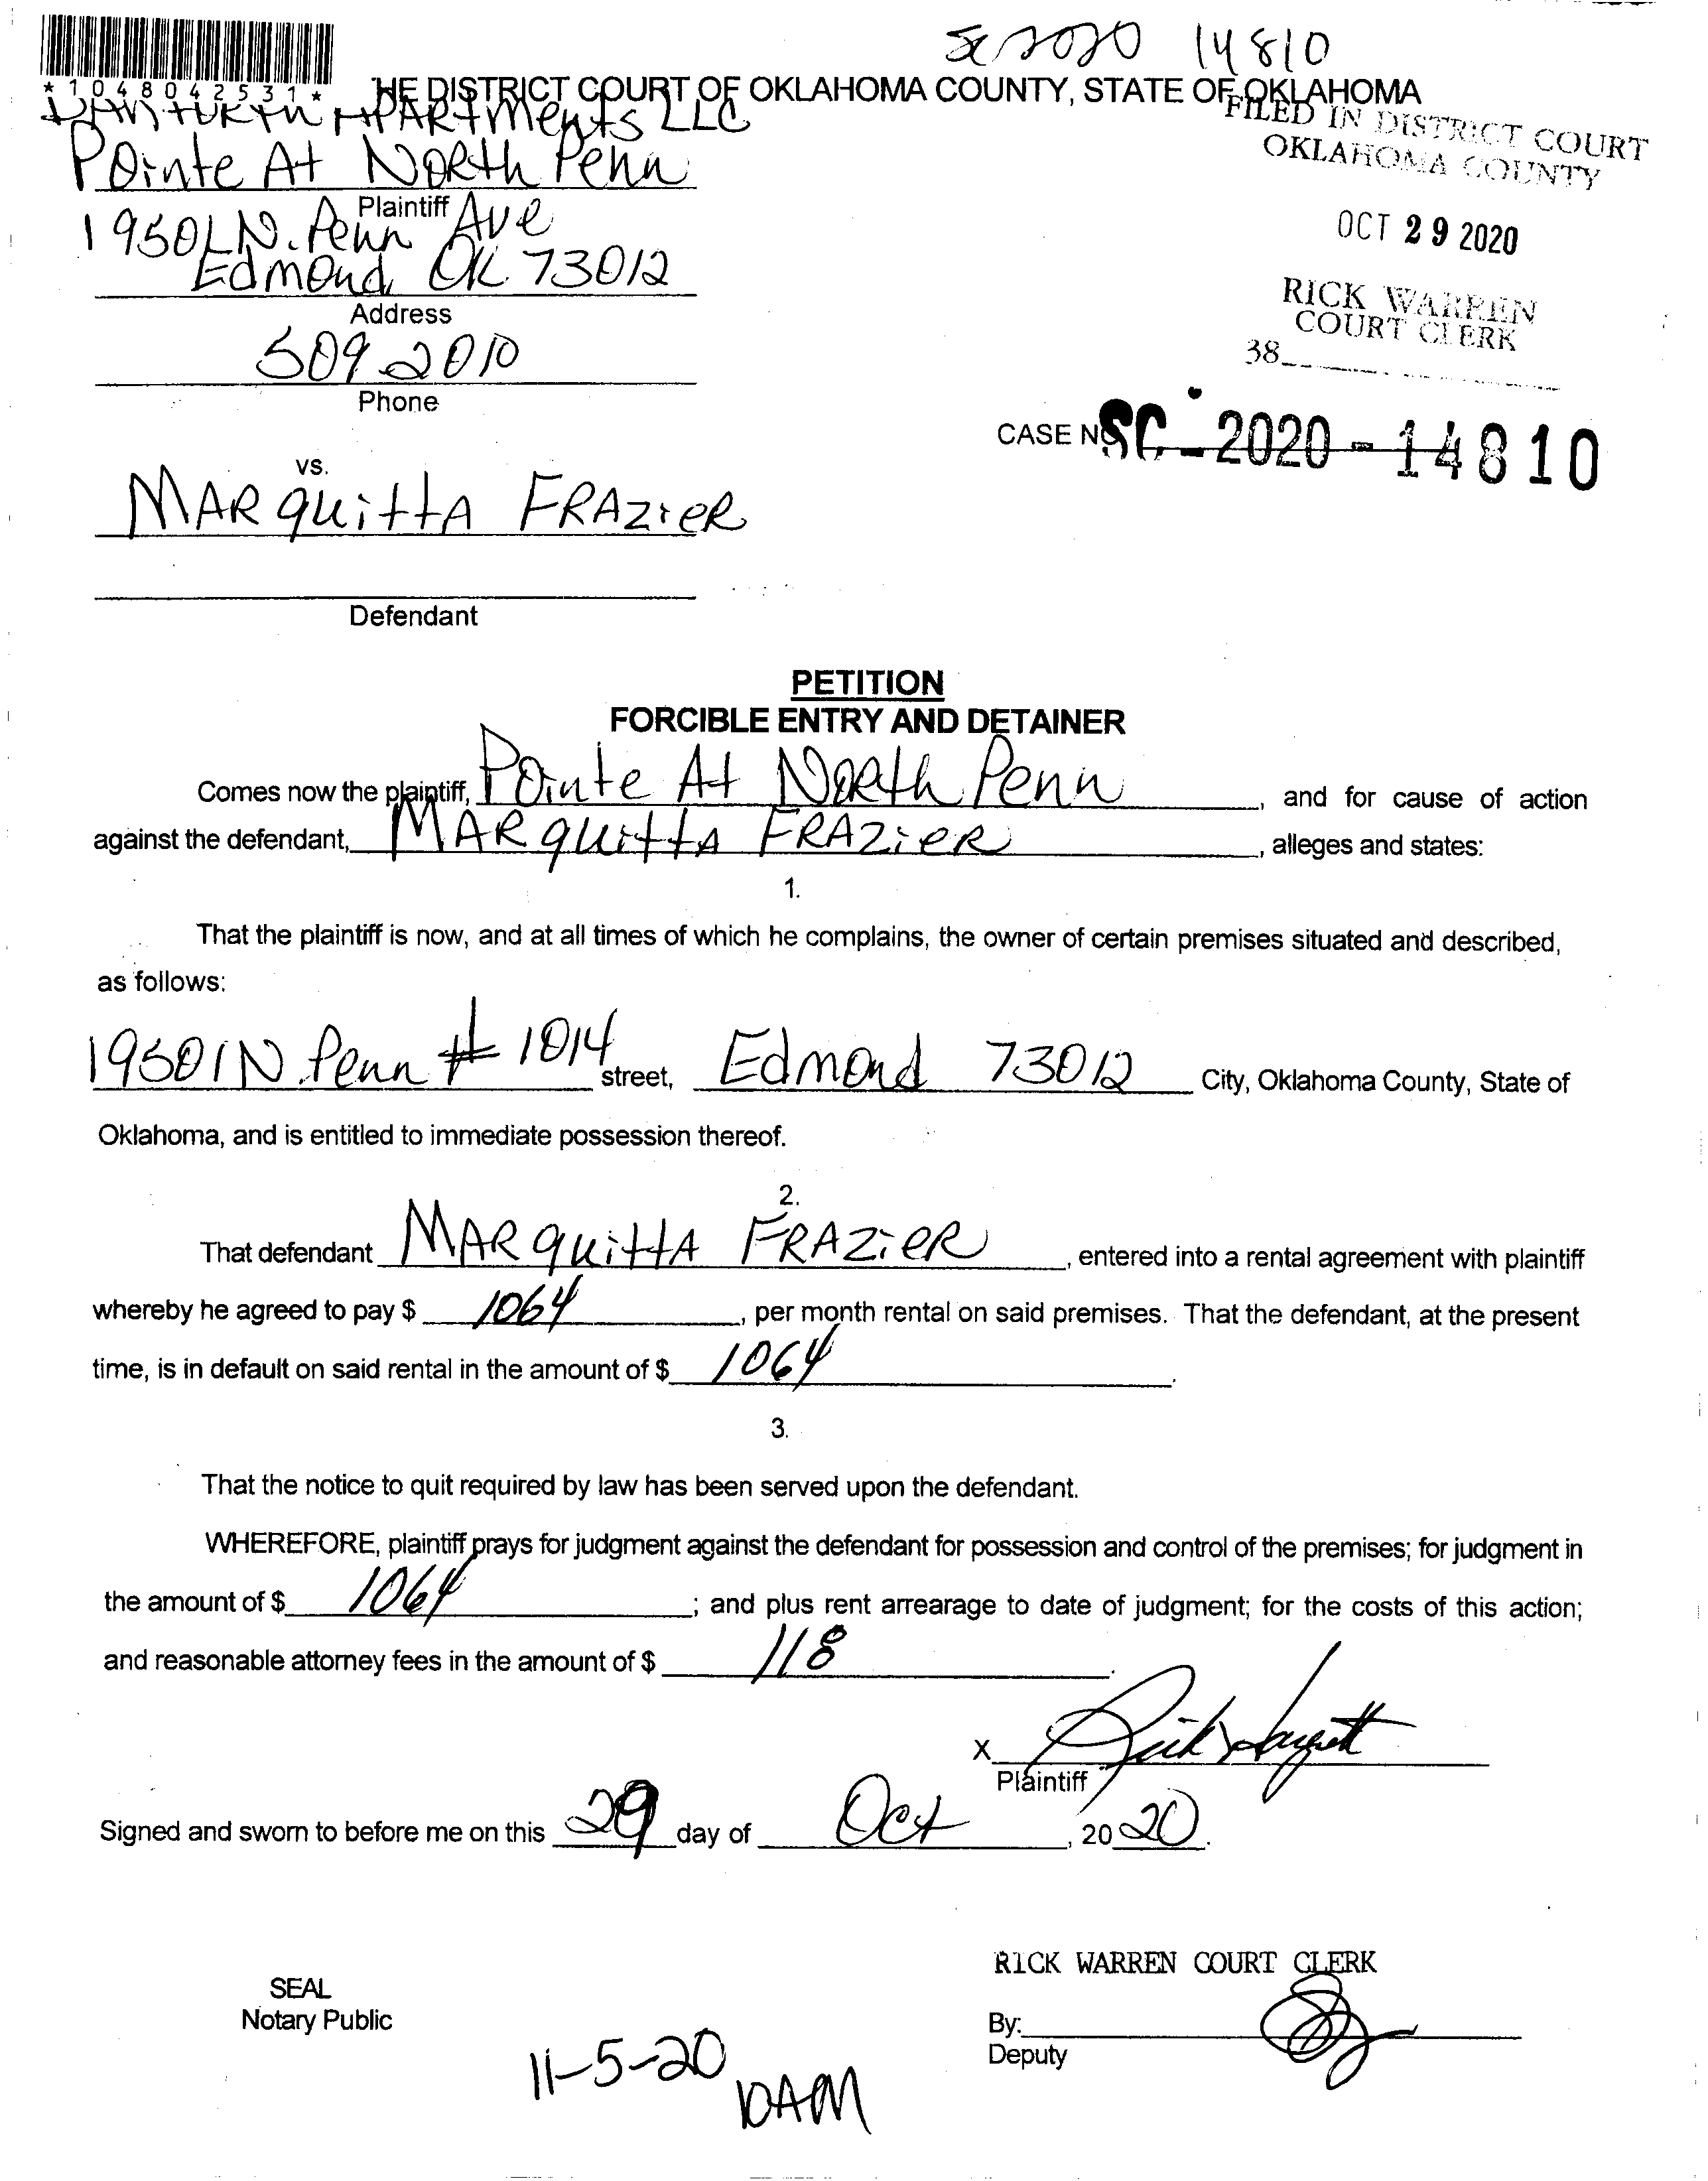 SC 2020 14810
*1048042531*
HE DISTRICT COURT OF OKLAHOMA COUNTY, STATE OF OKLAHOMA
APARtmeNts LLC
FILED IN DISTRICT COURT
OKLAHOMA COUNTY
POinte At NORth Penn
Plaintiff
19501 N. Penn Ave
OCT 29 2020
Edmond, OK 73012
Address
RICK WARREN
COURT CLERK
509 2010
38
Phone
CASE NO SC - 2020 - 14810
vs.
MARquittA FRAZieR
Defendant
PETITION
FORCIBLE ENTRY AND DETAINER
Comes now the plaintiff, POinte At NORth Penn, and for cause of action
against the defendant, MARquittA FRAZieR, alleges and states:
1.
That the plaintiff is now, and at all times of which he complains, the owner of certain premises situated and described,
as follows:
19501 N. Penn # 1014 street, Edmond 73012 City, Oklahoma County, State of
Oklahoma, and is entitled to immediate possession thereof.
2.
That defendant MARquittA FRAZieR, entered into a rental agreement with plaintiff
whereby he agreed to pay $ 1064, per month rental on said premises. That the defendant, at the present
time, is in default on said rental in the amount of $ 1064.
3.
That the notice to quit required by law has been served upon the defendant.
WHEREFORE, plaintiff prays for judgment against the defendant for possession and control of the premises; for judgment in
the amount of $ 1064; and plus rent arrearage to date of judgment; for the costs of this action;
and reasonable attorney fees in the amount of $ 118.
X
Plaintiff
Signed and sworn to before me on this 29 day of Oct, 2020.
RICK WARREN COURT CLERK
SEAL
Notary Public
By:
Deputy
11-5-20
10AM